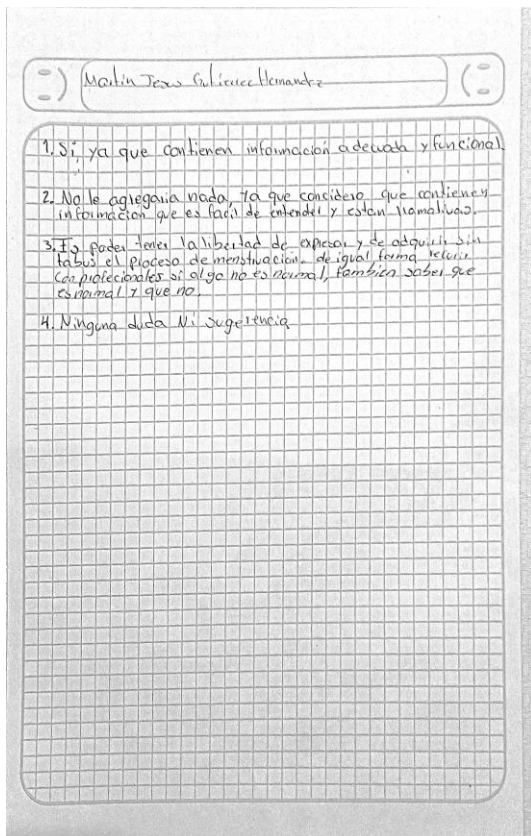 Martin Jesus Gutierrez Hernandez
1. Si, ya que contienen información adecuada y funcional.
2. No le agregaria nada, ya que concidero que contienen
informacion que es facil de entender y estan llamativas.
3. Es poder tener la libertad de expresar y de adquirir sin
tabus el proceso de menstruacion. de igual forma recurir
con profecionales si algo no es normal, tambien saber que
es normal y que no.
4. Ninguna duda Ni sugerencia